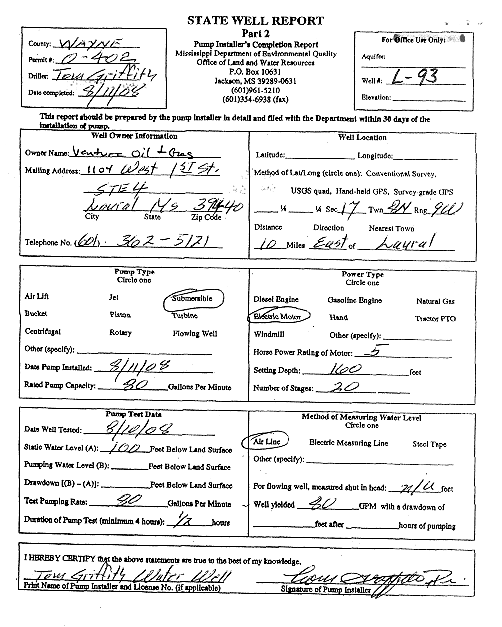 STATE WELL REPORT
Part 2
Pump Installer's Completion Report
Mississippi Department of Environmental Quality
Office of Land and Water Resources
P.O. Box 10631
Jackson, MS 39289-0631
(601)961-5210
(601)354-6938 (fax)
County: WAYNE
Permit #: 0-402
Driller: Tom Griffith
Date completed: 8/11/08
For Office Use Only:
Aquifer:
Well #: L-93
Elevation:
This report should be prepared by the pump installer in detail and filed with the Department within 30 days of the
installation of pump.
Well Owner Information
Owner Name: Venture Oil + Gas
Mailing Address: 1104 West 1st St.
STE 4
Laurel Ms 39440
City State Zip Code
Telephone No. (601) 362-5121
Well Location
Latitude: Longitude:
Method of Lat/Long (circle one): Conventional Survey,
USGS quad, Hand-held GPS, Survey-grade GPS
¼ ¼ Sec 17 Twn 8N Rng 9W
Distance Direction Nearest Town
10 Miles East of Laurel
Pump Type
Circle one
Air Lift Jet Submersible
Bucket Piston Turbine
Centrifugal Rotary Flowing Well
Other (specify):
Date Pump Installed: 8/11/08
Rated Pump Capacity: 80 Gallons Per Minute
Power Type
Circle one
Diesel Engine Gasoline Engine Natural Gas
Electric Motor Hand Tractor PTO
Windmill Other (specify):
Horse Power Rating of Motor: 5
Setting Depth: 160 feet
Number of Stages: 20
Pump Test Data
Date Well Tested: 8/10/08
Static Water Level (A): 100 Feet Below Land Surface
Pumping Water Level (B): Feet Below Land Surface
Drawdown [(B) – (A)]: Feet Below Land Surface
Test Pumping Rate: 80 Gallons Per Minute
Duration of Pump Test (minimum 4 hours): 12 hours
Method of Measuring Water Level
Circle one
Air Line Electric Measuring Line Steel Tape
Other (specify):
For flowing well, measured shut in head: N/A feet
Well yielded 80 GPM with a drawdown of
feet after hours of pumping
I HEREBY CERTIFY that the above statements are true to the best of my knowledge.
Tom Griffith Water Well
Print Name of Pump Installer and License No. (if applicable)
Signature of Pump Installer